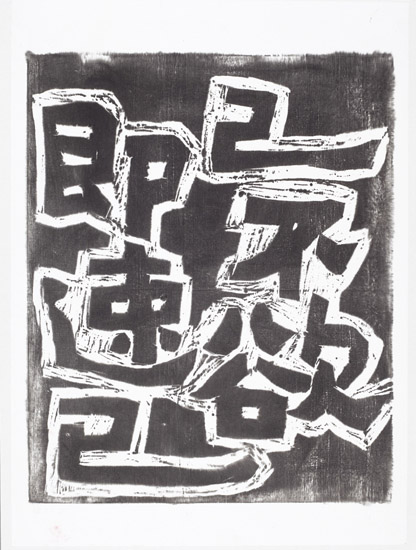 己不欲
即速己